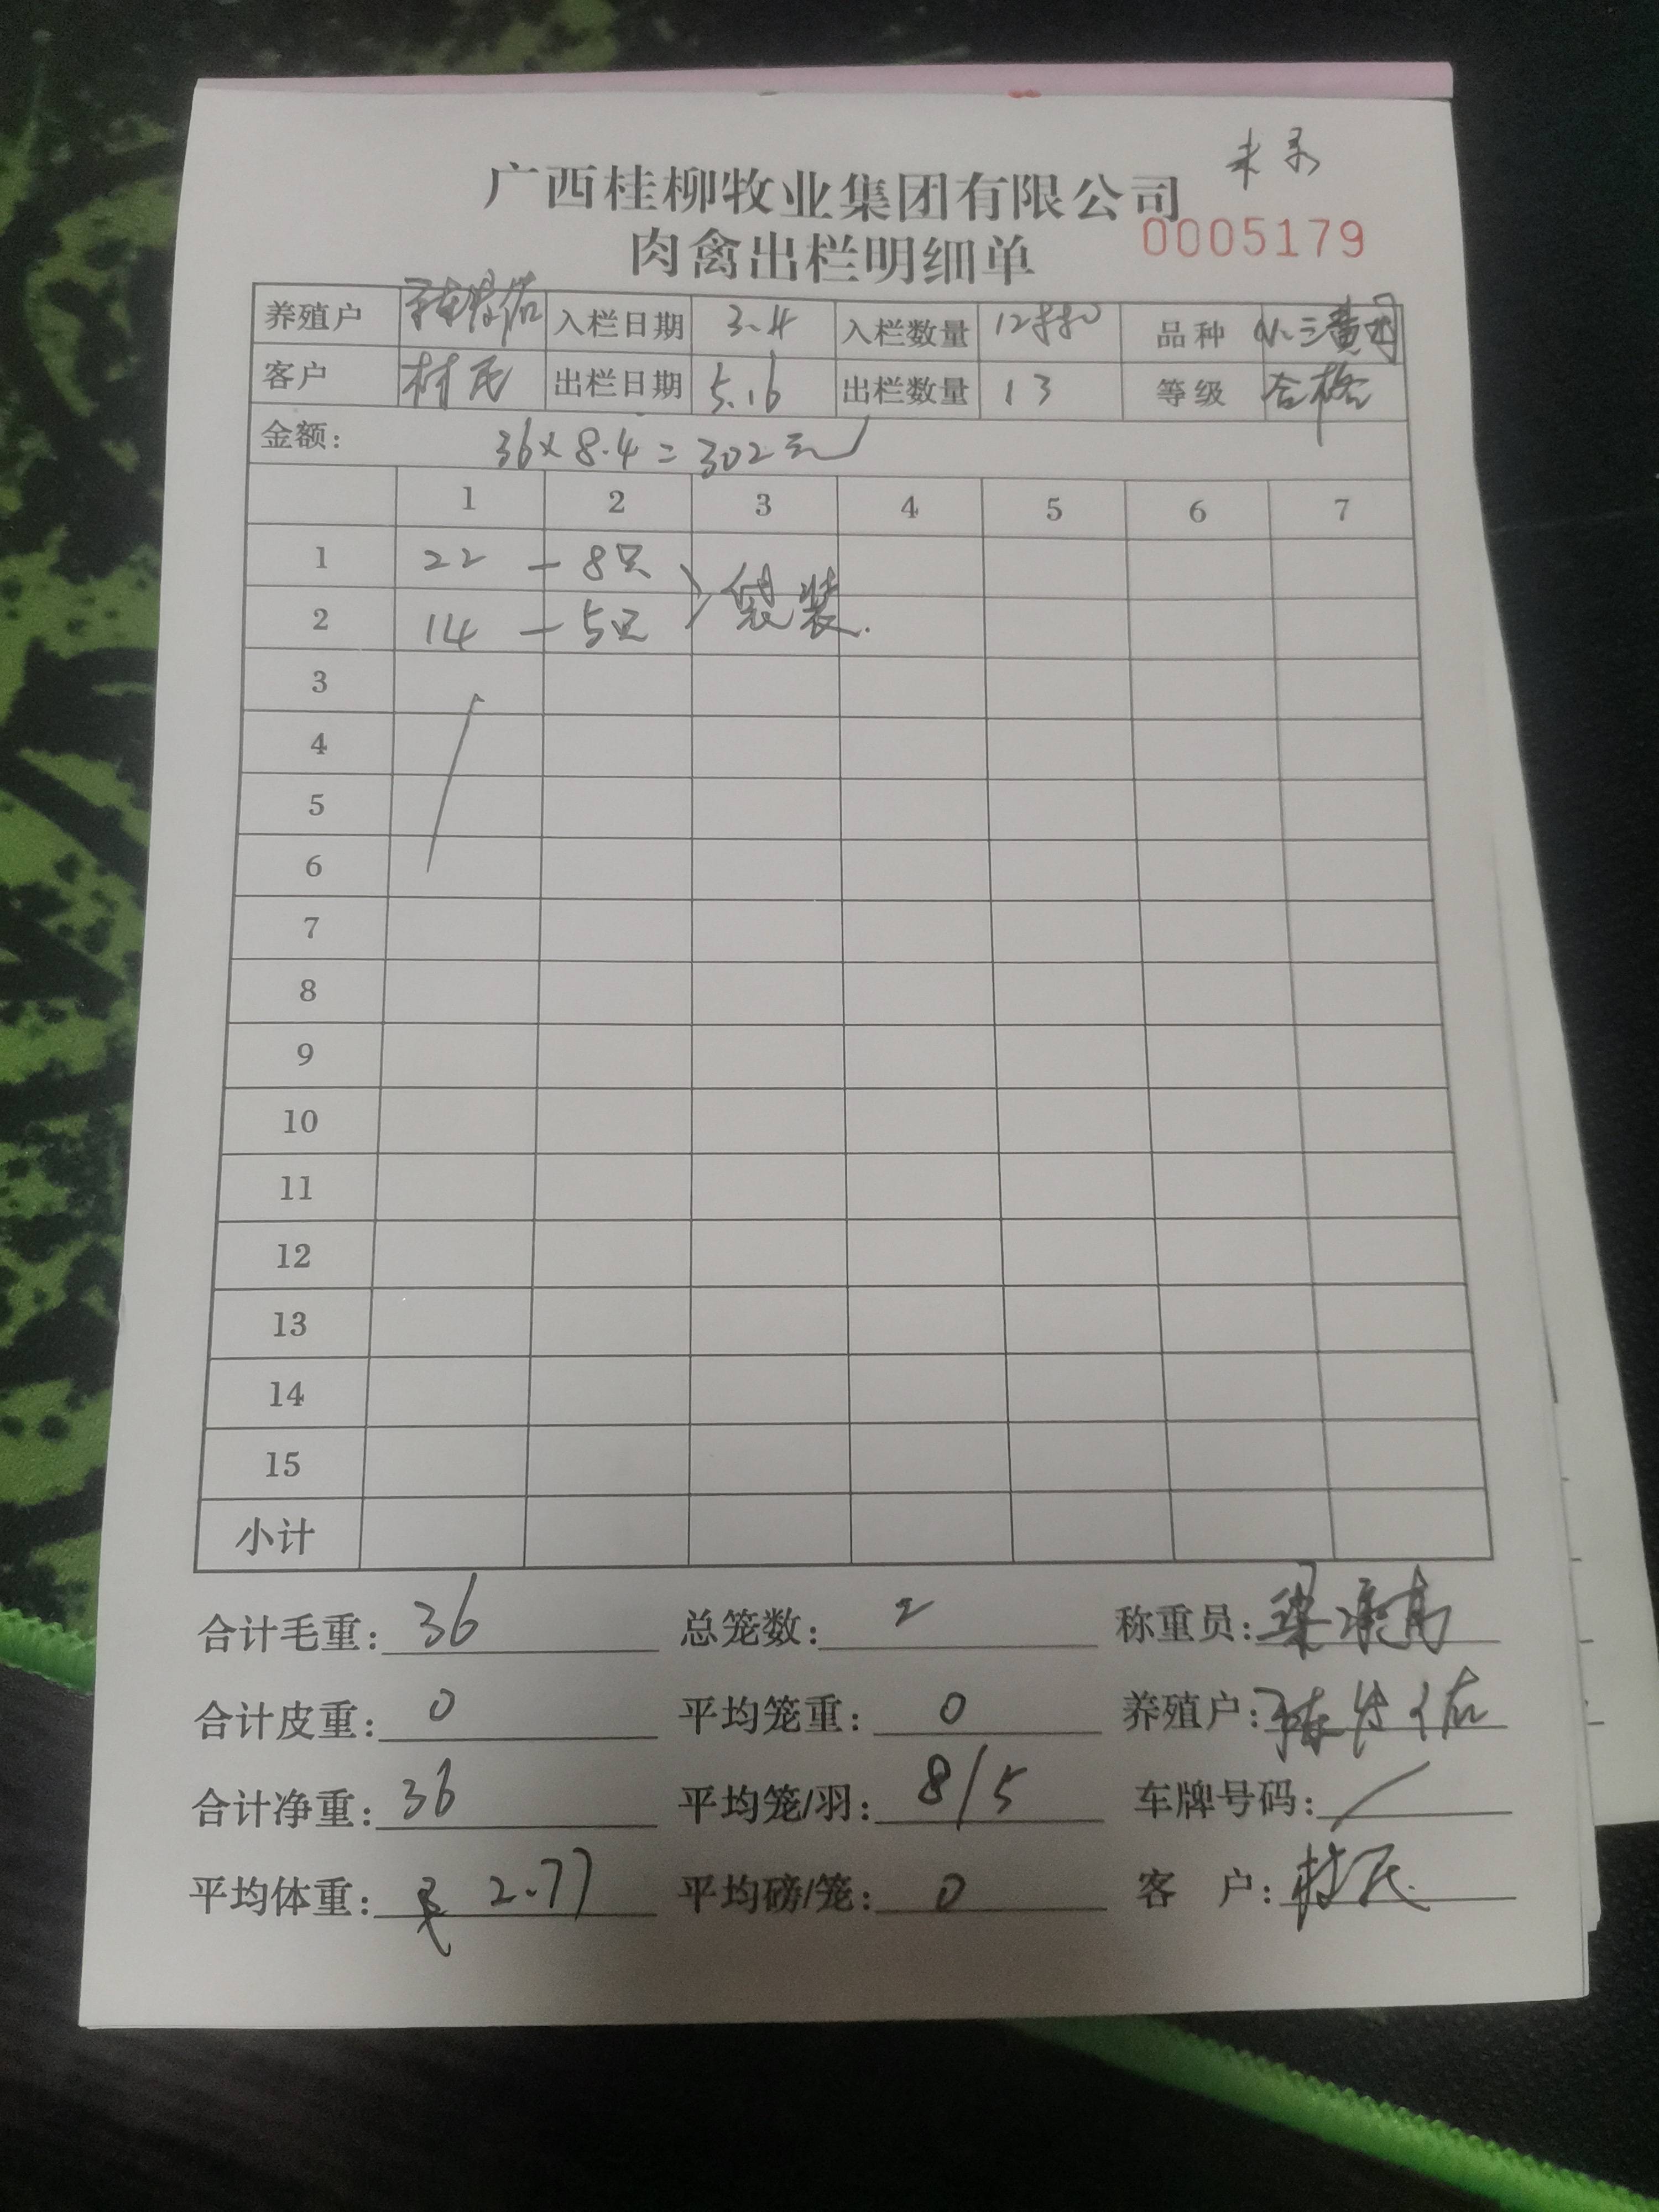 未录
广西桂柳牧业集团有限公司
0005179
肉禽出栏明细单
养殖户 入栏日期 3.4 入栏数量 12880 品种 小三黄
客户 村民 出栏日期 5.16 出栏数量 13 等级 合格
金额: 36×8.4=302元
1 2 3 4 5 6 7
1 22 — 8只
袋装.
2 14 — 5只
3
4
5
6
7
8
9
10
11
12
13
14
15
小计
合计毛重: 36 总笼数: 2 称重员: 梁
合计皮重: 0 平均笼重: 0 养殖户: 佑
合计净重: 36 平均笼/羽: 8/5 车牌号码: /
平均体重: 2.77 平均磅/笼: 0 客 户: 村民